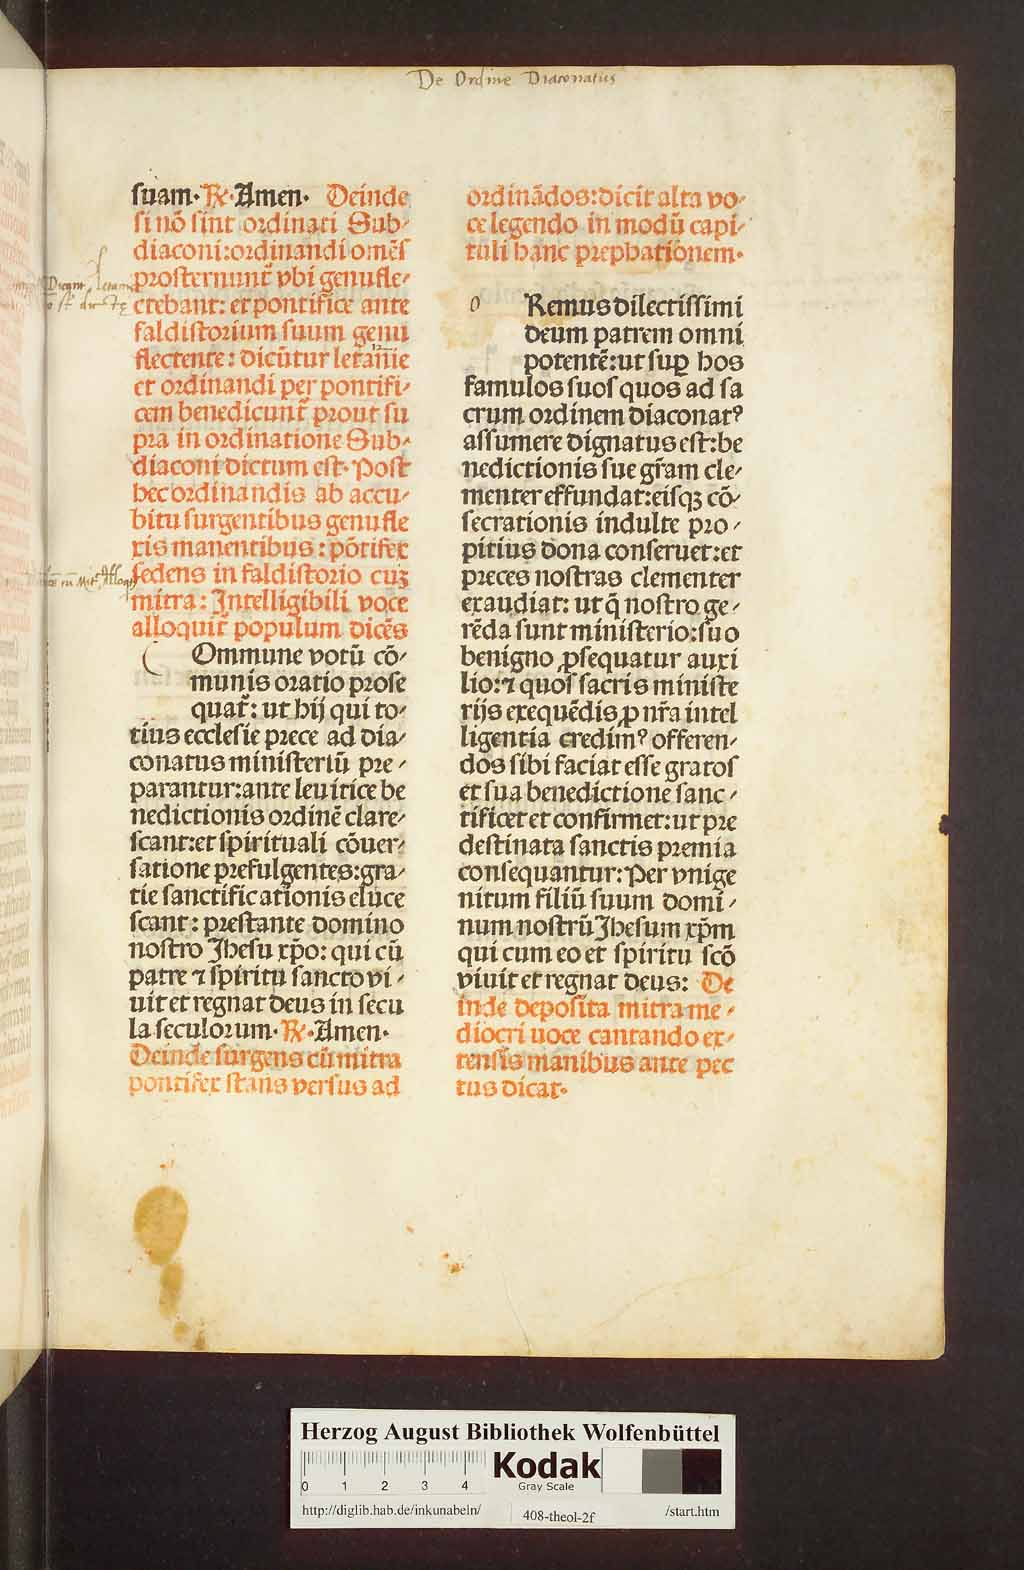 De Ordine Diaconatus
suam· ℟·Amen· Deinde
si nõ sint ordinati Sub-
diaconi:ordinandi omẽs
prosternunt᷑ vbi genufle-
ctebant: et pontifice ante
faldistorium suum genu
flectente: dicũtur letanie
et ordinandi per pontifi-
cem benedicunt᷑ prout su
pra in ordinatione Sub-
diaconi dictum est· Post
hec ordinandis ab accu-
bitu surgentibus genufle
xis manentibus: põtifex
sedens in faldistorio cuꝫ
mitra: Intelligibili voce
alloquit᷑ populum dicẽs
C Ommune votũ cõ-
munis oratio prose
quat᷑: ut hij qui to-
tius ecclesie prece ad dia-
conatus ministeriũ pre-
parantur:ante leuitice be
nedictionis ordinẽ clare-
scant:et spirituali cõuer-
satione prefulgentes:gra-
tie sanctificationis eluce
scant: prestante domino
nostro Jhesu xp̃o: qui cũ
patre ⁊ spiritu sancto vi-
uit et regnat deus in secu
la seculorum· ℟·Amen·
Deinde surgens cũ mitra
pontifex stans versus ad
ordinãdos:dicit alta vo-
ce legendo in modũ capi-
tuli hanc prephationem·
o Remus dilectissimi
deum patrem omni
potentẽ:ut suꝑ hos
famulos suos quos ad sa
crum ordinem diaconatꝰ
assumere dignatus est:be
nedictionis sue gr̃am cle-
menter effundat:eisqꝫ cõ-
secrationis indulte pro-
pitius dona conseruet:et
preces nostras clementer
exaudiat: ut q̃ nostro ge-
rẽda sunt ministerio:suo
benigno ꝓsequatur auxi
lio:⁊ quos sacris ministe
rijs exequẽdis ꝓ nr̃a intel
ligentia credimꝰ offeren-
dos sibi faciat esse gratos
et sua benedictione sanc-
tificet et confirmet:ut pre
destinata sanctis premia
consequantur: Per vnige
nitum filiũ suum domi-
num nostrũ Jhesum xp̃m
qui cum eo et spiritu scõ
viuit et regnat deus: De
inde deposita mitra me-
diocri uoce cantando ex-
tensis manibus ante pec
tus dicat·
Herzog August Bibliothek Wolfenbüttel
0 1 2 3 4
Kodak
Gray Scale
http://diglib.hab.de/inkunabeln/ 408-theol-2f /start.htm